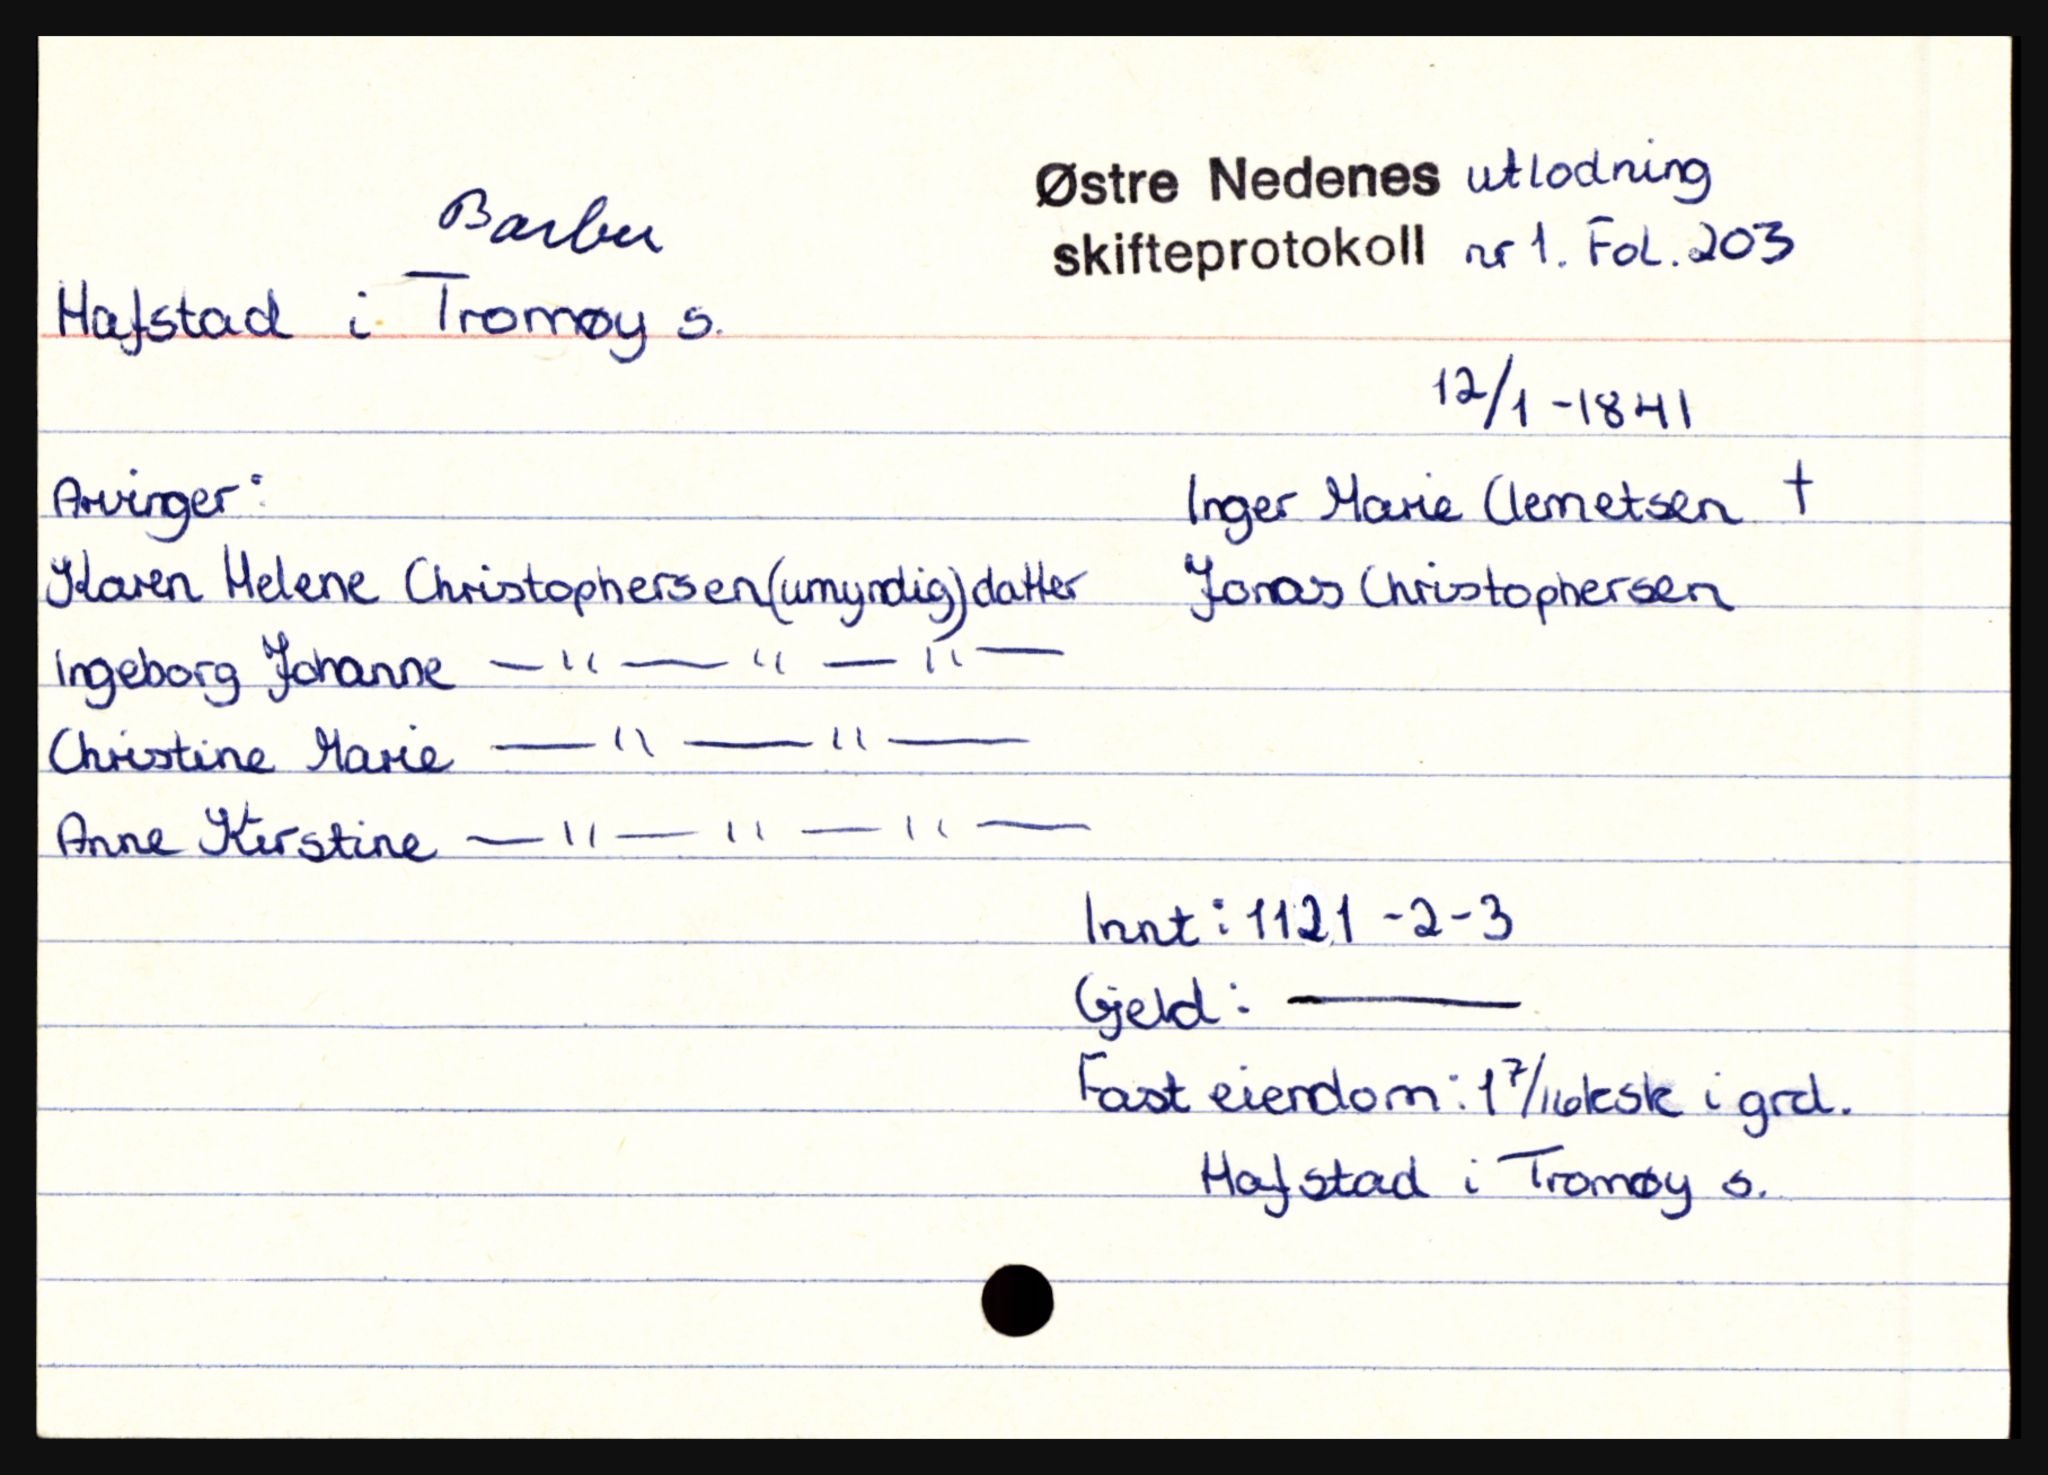 Østre Nedenes utlodning
skifteprotokoll nr 1. Fol. 203
Barbu
Hafstad i Tromøy s.
12/1 -1841
Arvinger:
Inger Marie Clemetsen †
Karen Helene Christophersen (umyndig) datter
Jonas Christophersen
Ingeborg Johanne — " — " — " —
Christine Marie — " — " —
Anne Kirstine — " — " — " —
Innt: 1121 -2-3
Gjeld: —
Fast eiendom: 1 7/16 ksk i grd.
Hafstad i Tromøy s.